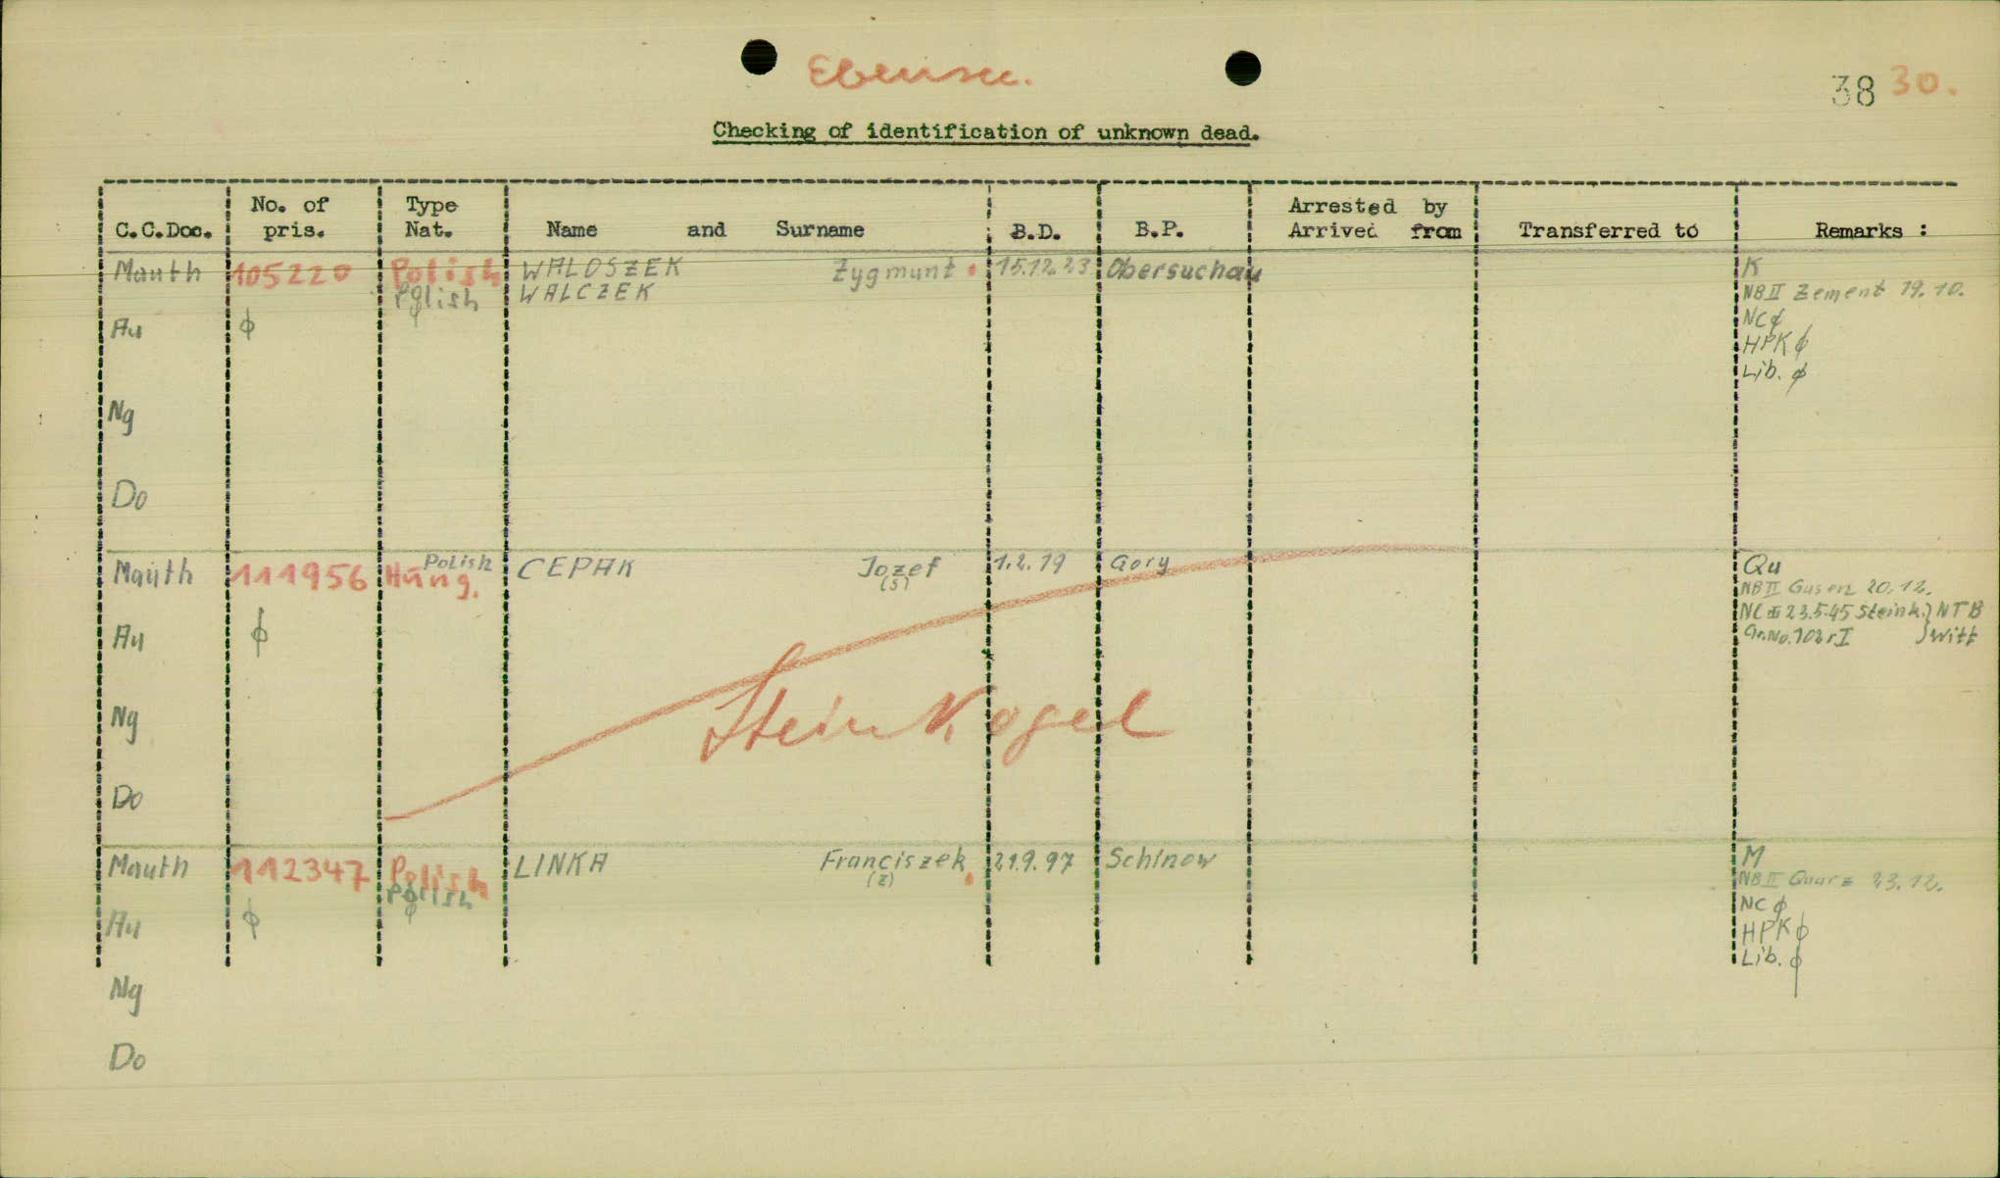 Ebensee.
38 30.
Checking of identification of unknown dead.
C.C.Doc. No. of pris. Type Nat. Name and Surname B.D. B.P. Arrested by Arrived from Transferred to Remarks :
Mauth 105220 Polish WALOSZEK Zygmunt 15.12.23 Obersuchau K
Polish WALCZEK NB II Zement 19.10.
Au ϕ ϕ NC ϕ
HPK ϕ
Lib. ϕ
Ng
Do
Mauth 111956 Hung. Polish CEPAK Jozef 1.2.19 Gory Qu
(S) NB II Gusen 20.12.
NC II 23.5.45 Steink. } NTB
Au ϕ Gr.No. I } Witt
Steinkogel
Ng
Do
Mauth 112347 Polish LINKA Franciszek 21.9.97 Schinow M
Polish (Z) NB II Quarz 23.12.
Au ϕ ϕ NC ϕ
HPK ϕ
Lib. ϕ
Ng
Do